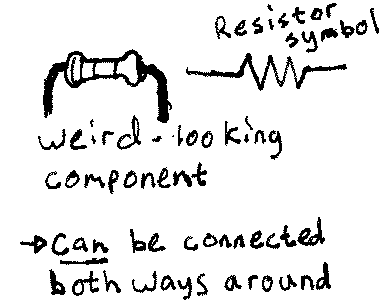 Resistor
symbol
weird-looking
component
→ Can be connected
both ways around